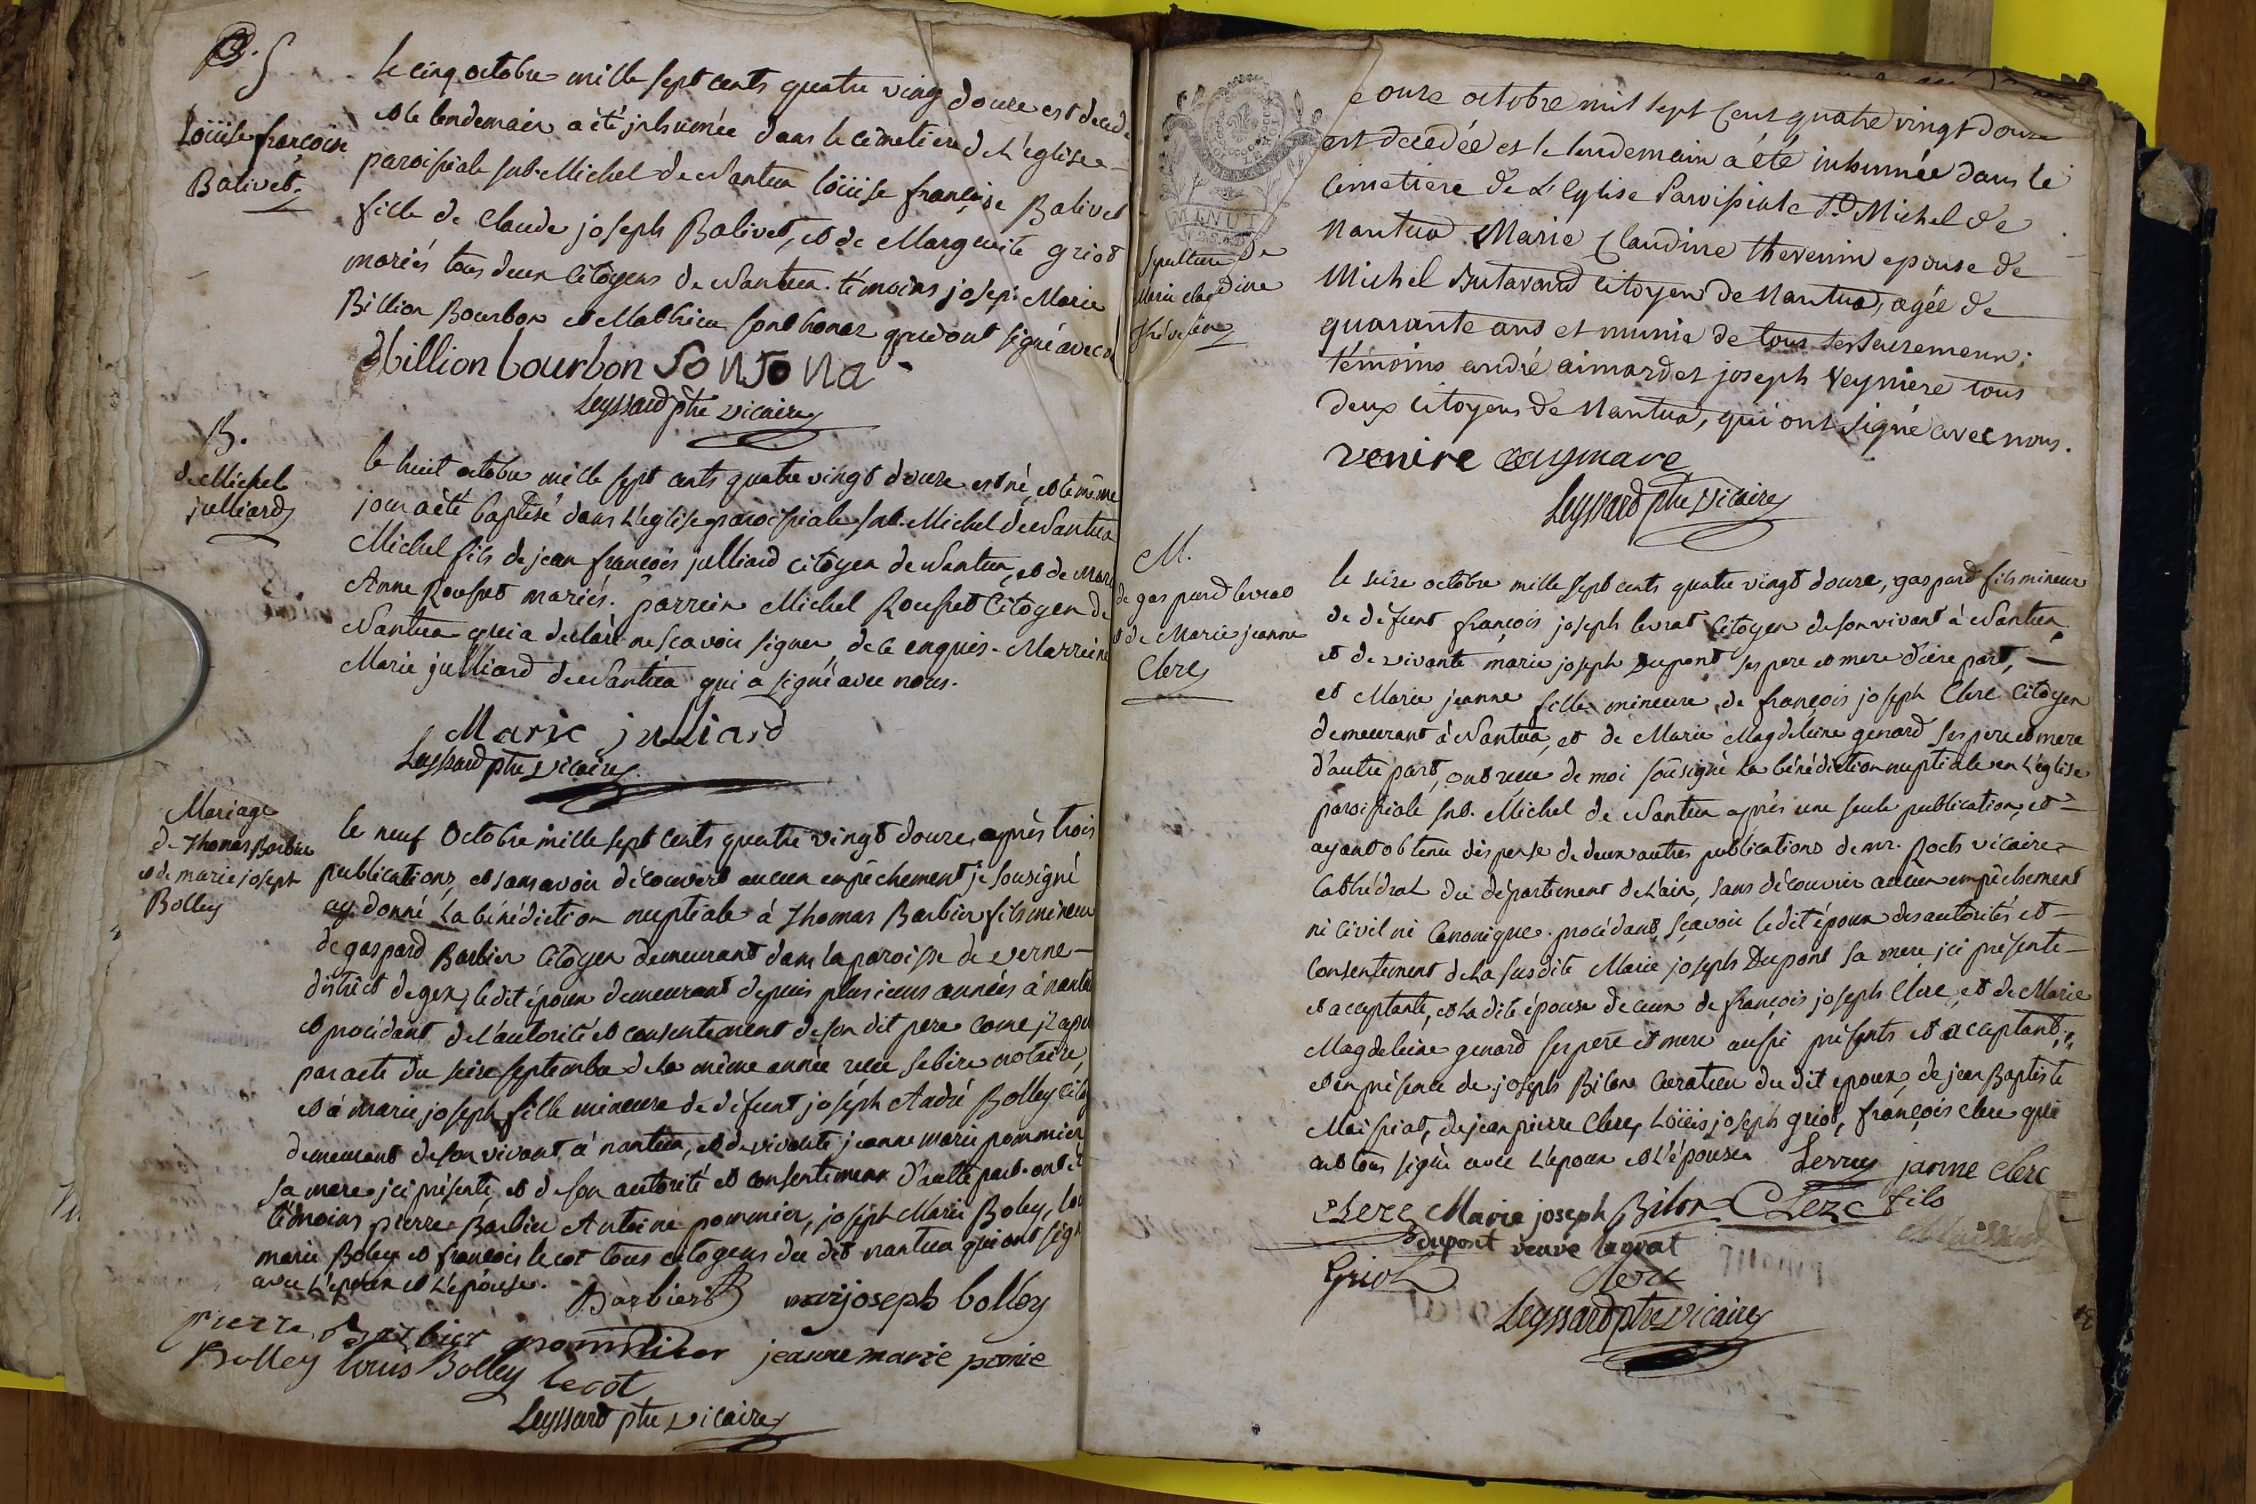 S
Loüise françoise
Balivet.
le cinq octobre mille sept cents quatre ving douze est decede
et le lendemain a été inhumée dans le cimetiere de L'église
paroissiale St. Michel de Nantua loüise françoise Balivet
fille de Claude joseph Balivet, et de Marguerite griot
mariés tous deux Citoyens de Nantua. témoins joseph Marie
Billion Bourbon et Mathieu sonthonax qui ont signé avec
Billion bourbon SoNJoNa
Leyssard ptre vicaire
B.
de Michel
julliard
le huit octobre mille sept cents quatre vingt douze est né, et le même
jour a été baptisé dans L'eglise paroissiale St. Michel de Nantua
Michel fils de jean françois julliard citoyen de Nantua, et de Marie
Anne Rousset mariés. parrein Michel Rousset Citoyen de
Nantua qui a declaré ne scavoir signer de ce enquis. Marreine
Marie julliard de Nantua qui a signé avec nous.
Marie julliard
Leyssard ptre vicaire
Mariage
de Thomas Barbier
et de marie joseph
Bolley
le neuf Octobre mille sept cents quatre vingt douze, après trois
publications, et sans avoir découvert aucun empêchement je sousigné
ay donné la bénédiction nuptiale à Thomas Barbier fils mineur
de gaspard Barbier Citoyen demeurant dans la paroisse de verne
district de gex, ledit époux demeurant depuis plusieurs années à nantua
et procédant de l'autorité et consentement de son dit pere come
par acte du seize septembre de la même année recu notaire,
et à marie joseph fille mineure de défunt joseph André Bolley
demeurant de son vivant à nantua, et de vivante jeanne marie pommier
sa mere ici présente et de son autorité et consentement d'autre part. ont été
témoins pierre Barbier Antoine pommier, joseph Marie Boley,
marie Boley et françois lecot tous citoyens du dit nantua qui ont signé
avec L'époux et L'épouse.
Barbier marijoseph bolley
pierre Barbier pommier jeanne marie pomie
Bolley louis Bolley lecot
Leyssard ptre vicaire
MINUT
Sepulture de
Marie Claudine
Thévenin
Le onze octobre mil sept Cent quatre vingt douze
est decedée et le lendemain a été inhumée dans le
Cimetiere de L'Eglise Paroissiale St. Michel de
Nantua Marie Claudine thevenin epouse de
Michel Butavand Citoyen de Nantua, agée de
quarante ans et munie de tous les sacremens:
témoins andré aimard et joseph Veyniere tous
deux Citoyens de Nantua, qui ont signé avec nous.
venire aymare
Leyssard ptre vicaire
M.
de gaspard levrat
et de Marie jeanne
Clerc
le seize octobre mille sept cents quatre vingt douze, gaspard fils mineur
de défunt françois joseph levrat Citoyen de son vivant à Nantua
et de vivante marie joseph Dupont ses pere et mere d'une part,
et Marie jeanne fille mineure de françois joseph Clerc Citoyen
demeurant à Nantua, et de Marie Magdeleine genard ses pere et mere
d'autre part, ont recu de moi sousigné la bénédiction nuptiale en L'église
paroissiale St. Michel de Nantua après une seule publication, et
ayant obtenu dispense de deux autres publications de mr. Rochs vicaire
Cathédral du département de L'ain, sans découvrir aucun empêchement
ni Civil ni Canonique. procédants sçavoir ledit époux des autorités et
Consentement de la susdite Marie joseph Dupont sa mere ici présente
et acceptante, et la dite épouse de ceux de françois joseph Clerc, et de Marie
Magdeleine genard ses pere et mere aussi présents et acceptants,
et en présence de joseph Bilon Curateur du dit epoux, de jean Baptiste
Maissiat, de jean pierre Clerc, Loüis joseph griot, françois clerc qui
ont tous signé avec L'époux et L'épouse.
janne clerc
Clerc Marie joseph Bilon Clerc fils
dupont veuve
Griot Clerc
Leyssard ptre vicaire